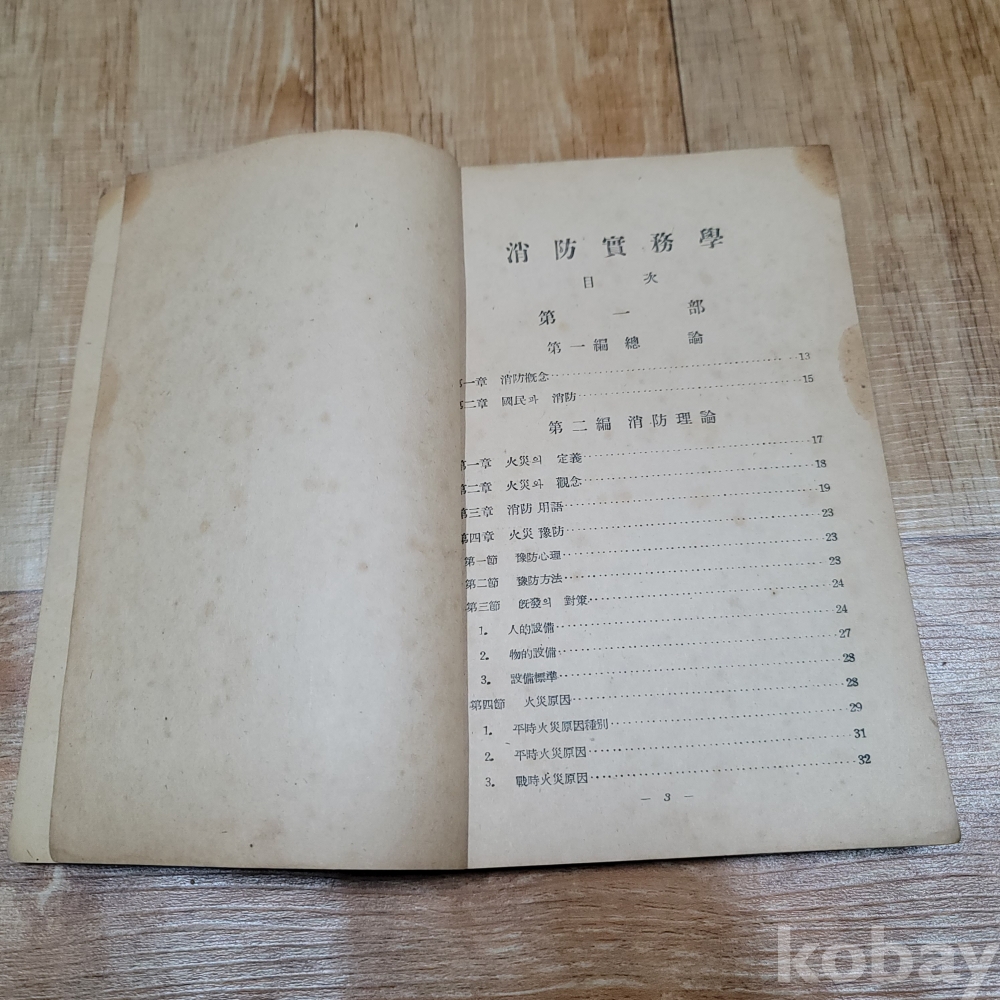 消防實務學
目次
第一部
第一編 總論
第一章 消防槪念 13
第二章 國民과 消防 15
第二編 消防理論
第一章 火災의 定義 17
第二章 火災와 觀念 18
第三章 消防用語 19
第四章 火災豫防 23
第一節 豫防心理 23
第二節 豫防方法 23
第三節 旣發의 對策 24
1. 人的設備 24
2. 物的設備 27
3. 設備標準 28
第四節 火災原因 28
1. 平時火災原因種別 29
2. 平時火災原因 31
3. 戰時火災原因 32
— 3 —
kobay